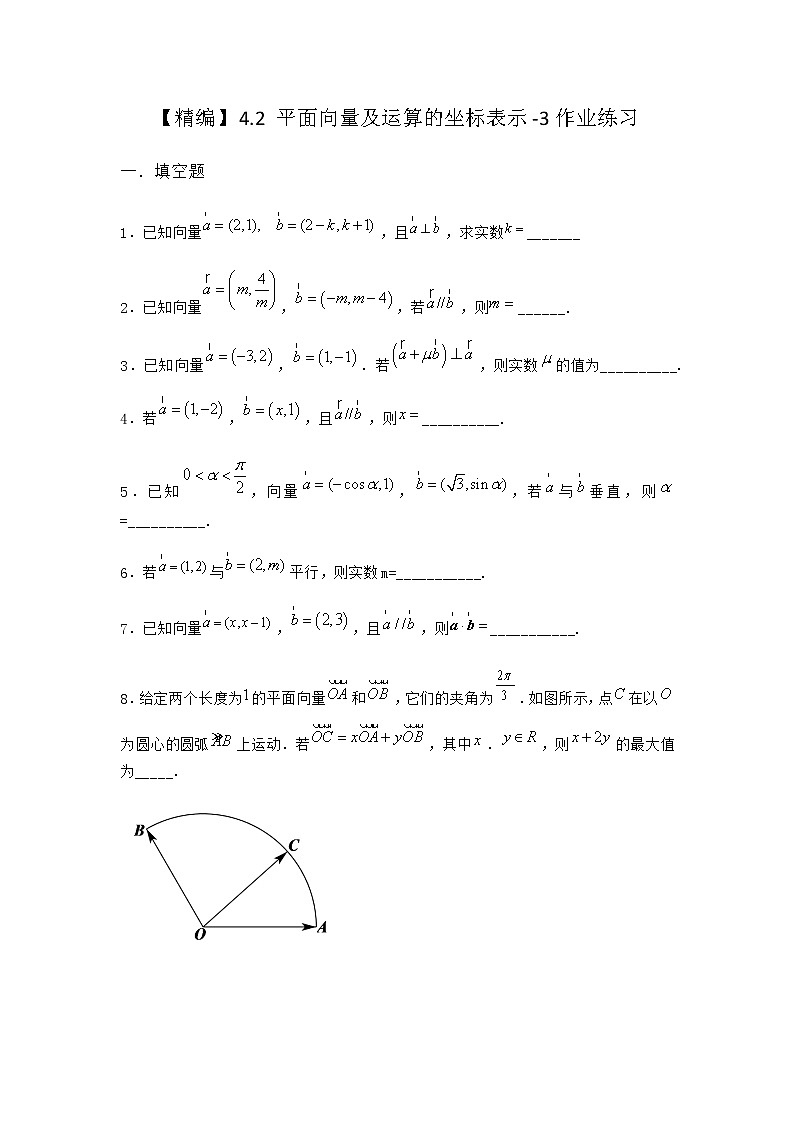 【精编】4.2 平面向量及运算的坐标表示-3作业练习
一．填空题
1.已知向量a=(2,1), b=(2-k,k+1)，且a⊥b，求实数k=_______
2.已知向量a=(m,4/m)，b=(-m,m-4)，若a//b，则m=______.
3.已知向量a=(-3,2)，b=(1,-1)．若(a+μb)⊥a，则实数μ的值为__________.
4.若a=(1,-2)，b=(x,1)，且a//b，则x=__________.
5.已知0<α<π/2，向量a=(-cosα,1)，b=(√3,sinα)，若a与b垂直，则α
=__________.
6.若a=(1,2)与b=(2,m)平行，则实数m=___________.
7.已知向量a=(x,x-1)，b=(2,3)，且a//b，则a·b=___________.
8.给定两个长度为1的平面向量OA和OB，它们的夹角为2π/3．如图所示，点C在以O
为圆心的圆弧AB上运动．若OC=xOA+yOB，其中x．y∈R，则x+2y的最大值
为_____.
B
C
O
A